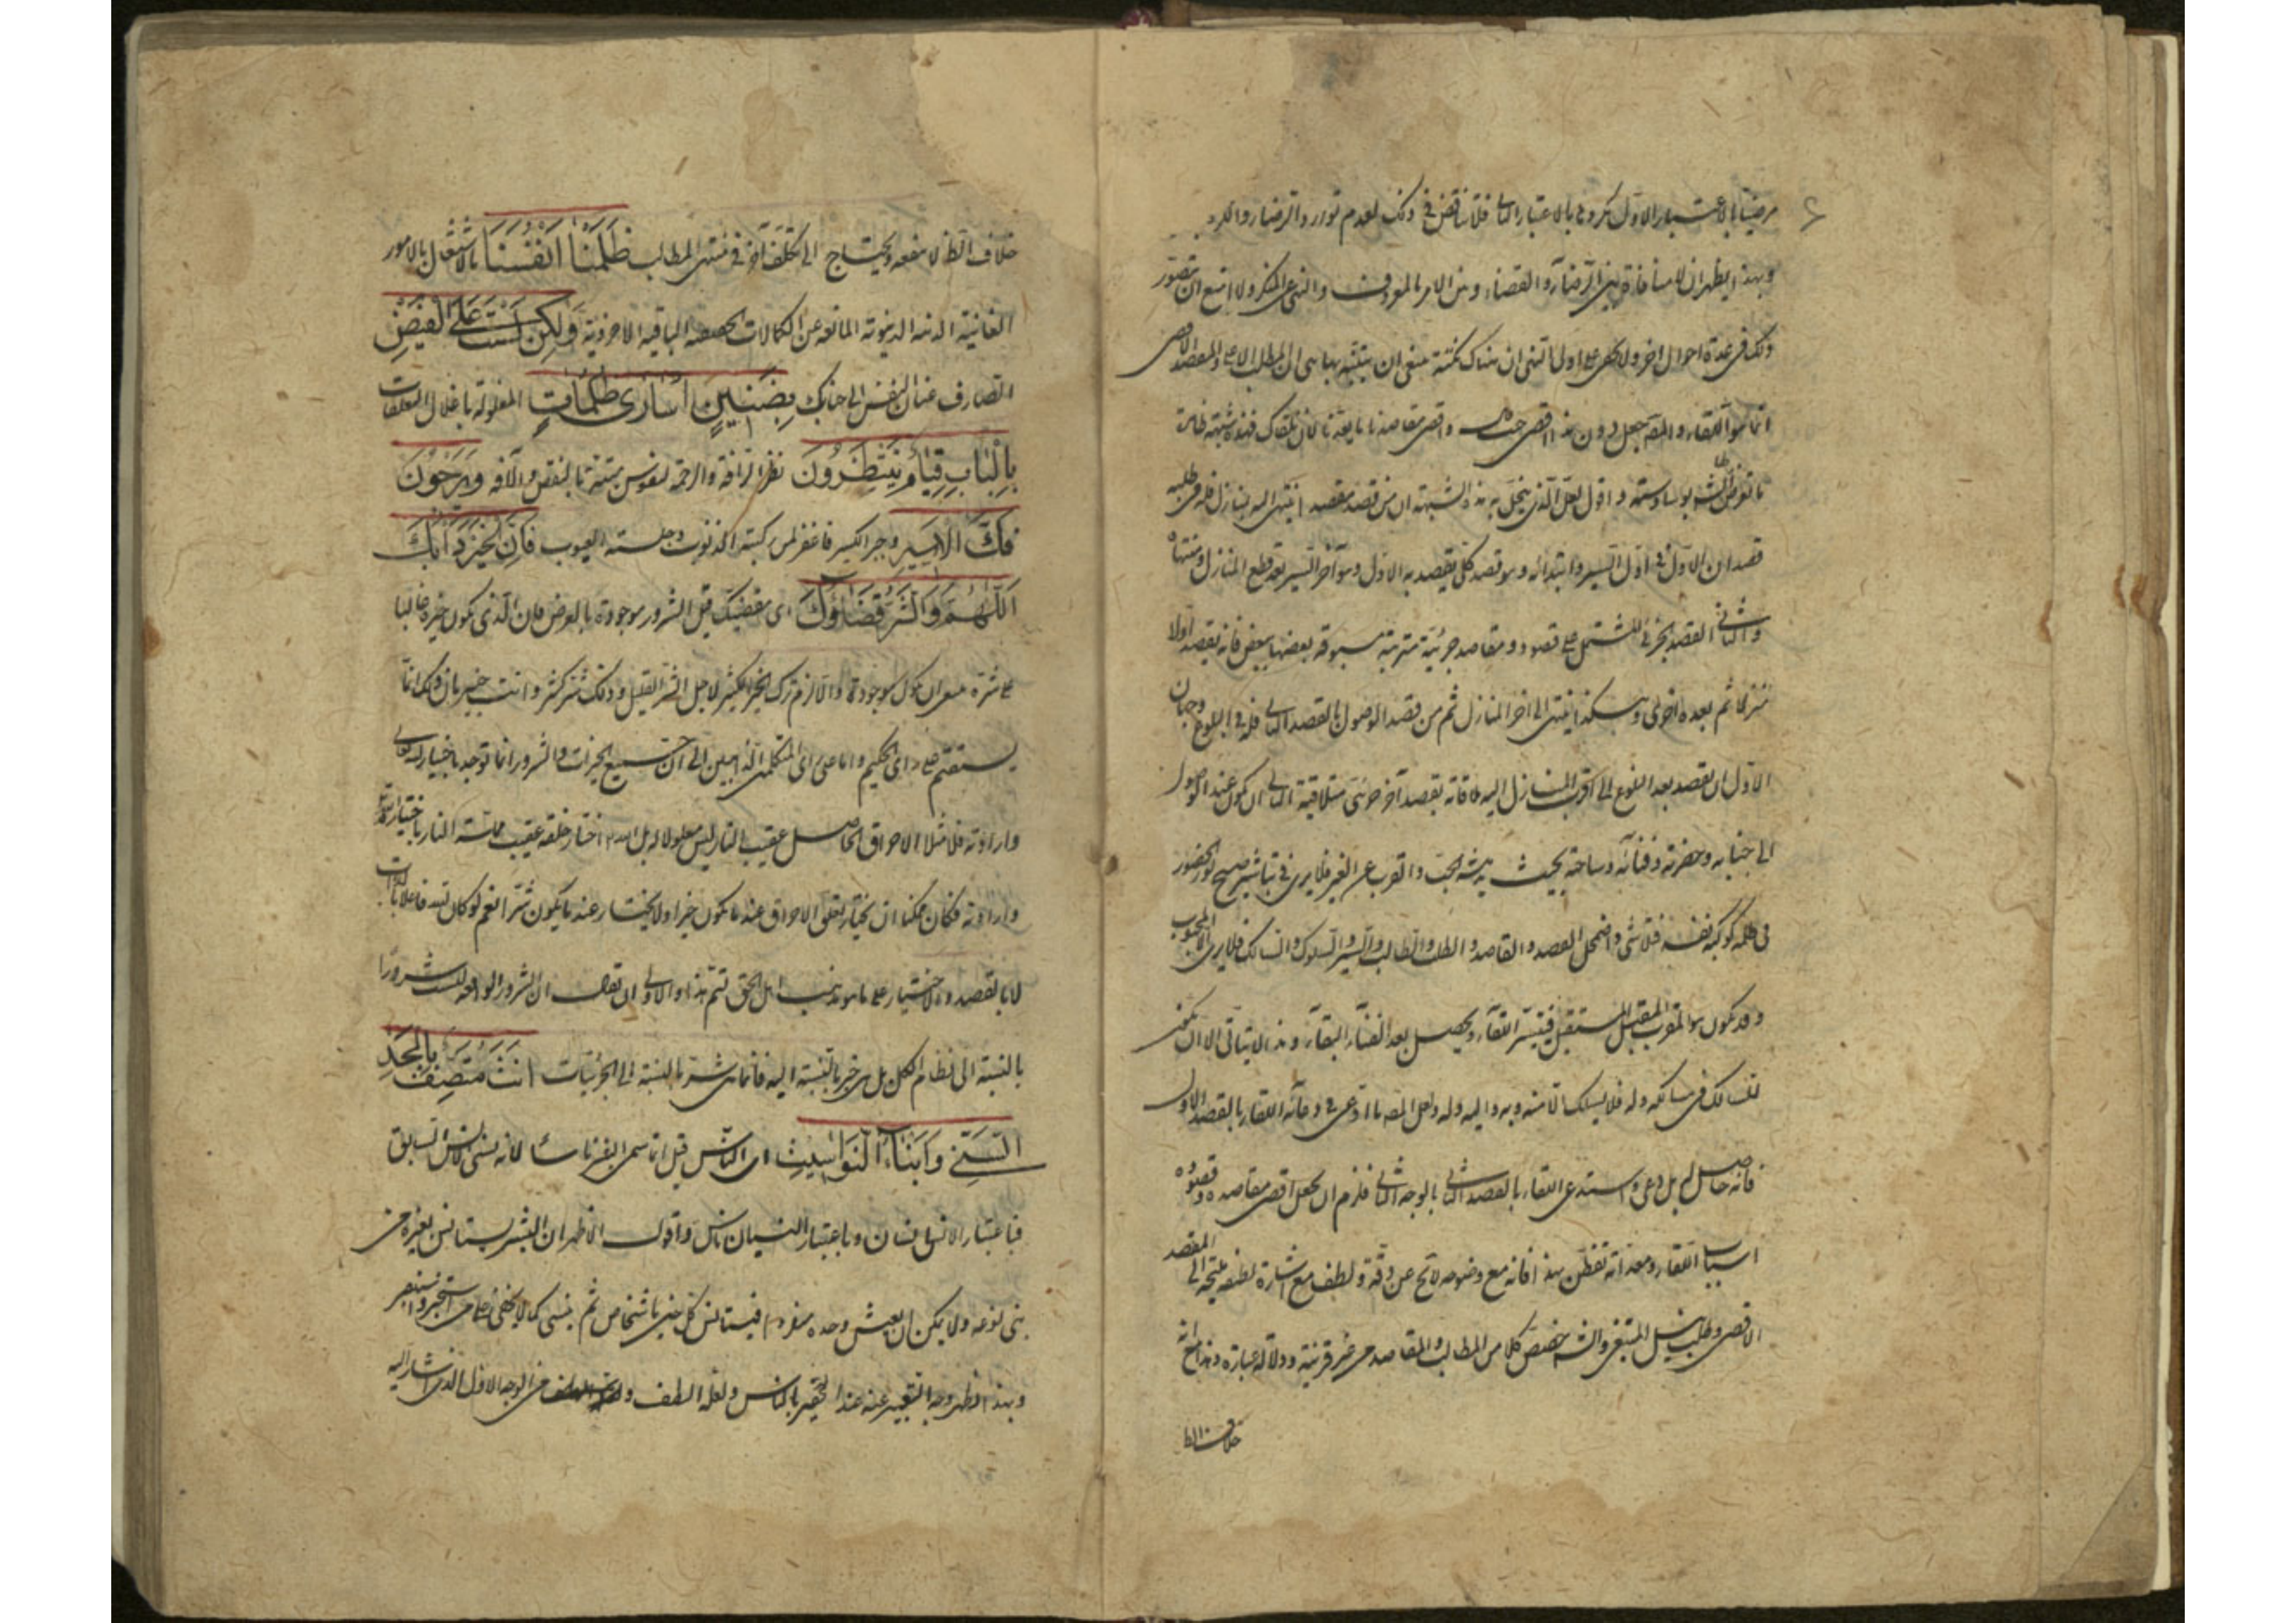 مرضيّا بالاعتبار الاوّل مكروه بالاعتبار الثانى فلا تناقض فى ذلك لعدم توارد الرضا والكره
وبهذا يظهر ان لا منافاة بين الرضاء والقضاء وبين الامر بالمعروف والنهى عن المنكر ولا امتنع ان يتصور
ذلك فى عدة احوال اخر ولا يخفى على اولى النهى ان هناك نكتة ينبغى ان يتنبّه بها هى ان المطلب الاعلى والمقصد الاقصى
انما هو اللقاء والمصّ جعل دون هذا اقصى حيث واقصى مقاصدنا ما يعدّنا لان نلقاك فهذه شبهة
بوساوسه واقول لعلّ الّذى ينحلّ به هذه الشبهة ان من قصد مقصدا ينتهى اليه بمنازل فله فى طلبه
قصدان الاوّل فى اوّل السير وابتدائه وهو قصد كلّى يقصد به الاوّل وهو آخر السير بعد قطع المنازل ومنتهاه
والثانى القصد الجزئى المشتمل على قصود ومقاصد جزئيّة مترتبة مسبوقة بعضها ببعض فانه يقصد اوّلا
منزلا ثم بعده اخرى وهكذا ينتهى الى آخر المنازل ثم من قصد الوصول بالقصد الثانى فله فى البلوغ وجهان
الاوّل ان يقصد بعد البلوغ الى اقرب المنازل اليه ملاقاته بقصد آخر جزئى متلاقية الثانى ان يكون عند الوصول
الى جنابه وحضرته وفنائه وساحته بحيث يدهشه الحبّ والقرب عن الغير فلا يرى فى تباشير صبح نور الحضور
فى ظلمة كوكبة نفسه فتلاشى واضمحل القصد والقاصد والطلب والطالب والسير والسلوك والسالك فلا يرى الا المحبوب
وقد يكون هو المقرب المقبل المستقبل فيتيسّر اللقاء ويحصل بعد الفناء البقاء وهذا لا يتاتى الا ان يكون
السالك فى مسالكه وله فلا يسلك الا منه وبه واليه وله ولعل المصّ ما ادّعى فى دعائه اللقاء بالقصد الاوّل
فانه حاصل له بل دعى واستدعى اللقاء بالقصد الثانى بالوجه الثانى فلزم ان يجعل اقصى مقاصده وقصوده
اسباب اللقاء ومعدّاته تفطّن بهذا فانه مع وضوحه لائح عن دقّة ولطف مع اشارة لطيفة ملتجئة الى المقصد
الاقصى وطلب نيل المبتغى وانه خصص كلا من المطالب والمقاصد من غير قرينة ودلالة عبارة وهذا مع انه
خلاف الظا
خلاف الظ لا ينفعه ويحتاج الى تكلّف آخر فى منتهى المطالب ظَلَمْنَا اَنْفُسَنَا بالاشتغال بالامور
الفانية الدنية الدنيوية المانعة عن الكمالات الباقية الاخروية وَلٰكِنْ لَسْتَ عَلَى الْفَيْضِ
الصارف عنان النفس الى جنابك بِضَنِيْنٍ اُسَارٰى ظُلُمَاتٍ المغلولة باغلال التعلقات
بِالْبَابِ قِيَامٌ يَنْتَظِرُوْنَ نظر الرافة والرحمة لنفوس ممتحنة بالنقص والآفة وَيَرْجُوْنَ
فَكَّ الْاَسِيْرِ وجبر الكسير فاغفر لمن كبّته الذنوب وجلسته العيوب فَاِنَّ الْخَيْرَ دَأْبُكَ
اَللّٰهُمَّ وَالشَّرَّ قَضَاؤُكَ اى مقضيك قيل الشرور موجودة بالعرض فان الّذى يكون خيره غالبا
على شرّه ينبغى ان يكون موجودة والا لزم ترك الخير الكثير لاجل الشرّ القليل وذلك شرّ كثير وانت خبير بان ذلك انما
يستقيم على راى الحكيم واما على راى المتكلمين الذاهبين الى ان جميع الخيرات والشرور انما توجد باختياره تعالى
وارادته فلا مثلا الاحراق الحاصل عقيب النار ليس معلولا له بل الله اختار خلقه عقيب مماسّة النار باختياره
وارادته فكان ممكنا ان يختار خلق الاحراق عند ما يكون خيرا ولا يختار عند ما يكون شرّا نعم لو كان الله فاعلا بالذات
لا بالقصد والاختيار على ما هو مذهب اهل الحق تتم هذا والاولى ان يقال ان الشرور الواقعة ليست شرورا
بالنسبة الى نظام الكل بل هى خير بالنسبة اليه فانما هى شر بالنسبة الى الجزئيات اَنْتَ مُتَّصِفٌ بِالْمَجْدِ
السَّنِىِّ وَاَبْنَاءُ النَّوَاسِيْتِ اى الناس قيل انما سمى البشر ناسا لانه ينسى الانس السابق
فباعتبار الانس انسان وباعتبار النسيان ناس واقول الاظهر ان البشر يستانس بغيره من
بنى نوعه ولا يمكن ان يعيش وحده منفردا فيستانس كل حين باشخاص ثم ينسى كما لا يخفى على من استخبر واستبصر
وبهذا اظهر وجه التعبير عنه عند الحقير بالناس ولعله الطف من الوجه الاول الذى اشار اليه